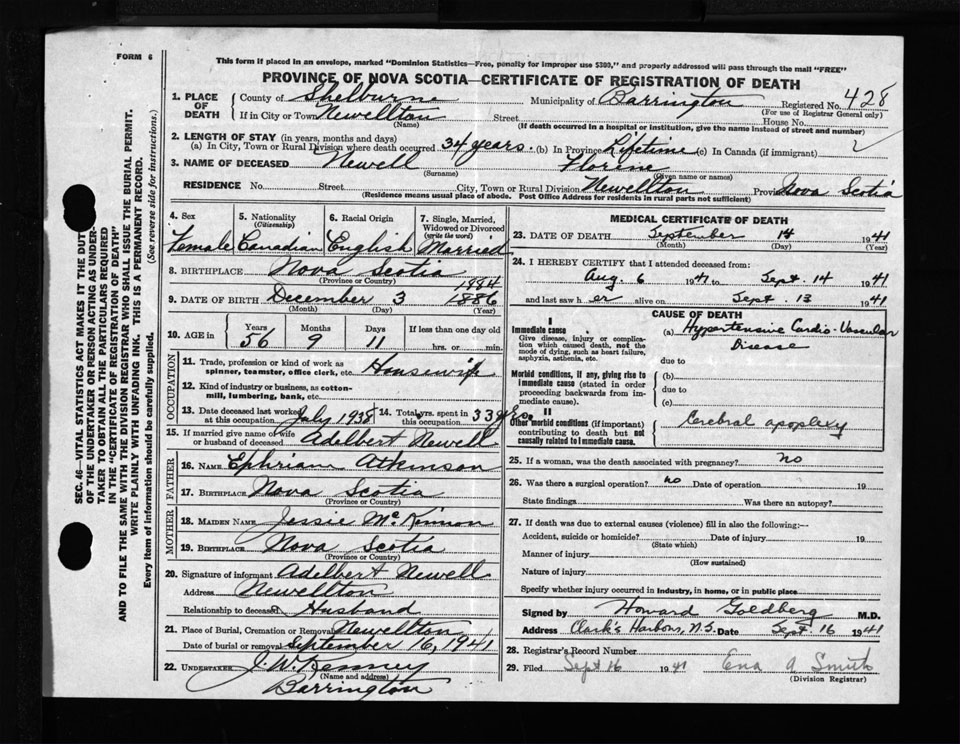 FORM 6
This form if placed in an envelope, marked "Dominion Statistics—Free, penalty for improper use $300," and properly addressed will pass through the mail "FREE"
PROVINCE OF NOVA SCOTIA—CERTIFICATE OF REGISTRATION OF DEATH
1. PLACE OF DEATH County of Shelburne Municipality of Barrington Registered No. 428
(For use of Registrar General only)
If in City or Town Newellton Street House No.
(Name) (If death occurred in a hospital or institution, give the name instead of street and number)
2. LENGTH OF STAY (in years, months and days)
(a) In City, Town or Rural Division where death occurred 34 years. (b) In Province Lifetime (c) In Canada (if immigrant)
3. NAME OF DECEASED Newell
(Surname) (Given name or names)
RESIDENCE No. Street City, Town or Rural Division Newellton Province Nova Scotia
(Residence means usual place of abode. Post Office Address for residents in rural parts not sufficient)
4. Sex 5. Nationality (Citizenship) 6. Racial Origin 7. Single, Married, Widowed or Divorced (write the word)
Female Canadian English Married
8. BIRTHPLACE Nova Scotia
(Province or Country)
1884
9. DATE OF BIRTH December 3 1886
(Month) (Day) (Year)
10. AGE in Years Months Days If less than one day old
56 9 11 hrs. or min.
OCCUPATION
11. Trade, profession or kind of work as spinner, teamster, office clerk, etc. Housewife
12. Kind of industry or business, as cotton-mill, lumbering, bank, etc.
13. Date deceased last worked at this occupation July 1938 14. Total yrs. spent in this occupation 33 yrs.
15. If married give name of wife or husband of deceased Adelbert Newell
FATHER
16. NAME Ephriam Atkinson
17. BIRTHPLACE Nova Scotia
(Province or Country)
MOTHER
18. MAIDEN NAME Jessie McKinnon
19. BIRTHPLACE Nova Scotia
(Province or Country)
20. Signature of informant Adelbert Newell
Address Newellton
Relationship to deceased Husband
21. Place of Burial, Cremation or Removal Newellton
Date of burial or removal September 16, 1941
22. UNDERTAKER J. W. Kenney
(Name and address)
Barrington
MEDICAL CERTIFICATE OF DEATH
23. DATE OF DEATH September 14 1941
(Month) (Day) (Year)
24. I HEREBY CERTIFY that I attended deceased from:
Aug. 6 1941 to Sept. 14 1941
and last saw her alive on Sept. 13 1941
CAUSE OF DEATH
I
Immediate cause (a) Hypertensive Cardio-Vascular
Give disease, injury or complication which caused death, not the mode of dying, such as heart failure, asphyxia, asthenia, etc. Disease
due to
Morbid conditions, if any, giving rise to immediate cause (stated in order proceeding backwards from immediate cause). (b)
due to
(c)
II
Other morbid conditions (if important) contributing to death but not causally related to immediate cause. Cerebral apoplexy
25. If a woman, was the death associated with pregnancy? no
26. Was there a surgical operation? no Date of operation 19
State findings Was there an autopsy?
27. If death was due to external causes (violence) fill in also the following:—
Accident, suicide or homicide? Date of injury 19
(State which)
Manner of injury
(How sustained)
Nature of injury
Specify whether injury occurred in industry, in home, or in public place
Signed by Howard Goldberg M.D.
Address Clark's Harbour, N.S. Date Sept 16 1941
28. Registrar's Record Number
29. Filed Sept 16 1941 Ena A Smith
(Division Registrar)
SEC. 46—VITAL STATISTICS ACT MAKES IT THE DUTY
OF THE UNDERTAKER OR PERSON ACTING AS UNDER-
TAKER TO OBTAIN ALL THE PARTICULARS REQUIRED
IN THE "CERTIFICATE OF REGISTRATION OF DEATH"
AND TO FILE THE SAME WITH THE DIVISION REGISTRAR WHO SHALL ISSUE THE BURIAL PERMIT.
WRITE PLAINLY WITH UNFADING INK. THIS IS A PERMANENT RECORD.
Every item of information should be carefully supplied. (See reverse side for instructions.)